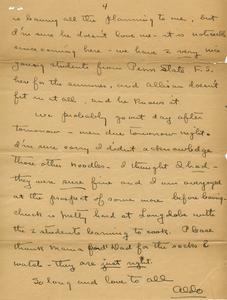 4
is leaving all the planning to me, but
I'm sure he doesn't love me - it is noticeable
since coming here - we have 2 very nice
young students from Penn State F. S.
here for the summer, and Allison doesn't
fit in at all, and he knows it
We probably go out day after
tomorrow - men due tomorrow night -
I'm sorry I didn't acknowledge
those other noodles - I thought I had -
they were sure fine and I am overjoyed
at the prospect of some more before leaving -
chuck is Milly hard at Long dobe with
the 2 students learning to cook. Please
thank Mama and Dad for the socks &
watch - they are just right.
So long and love to all
Aldo